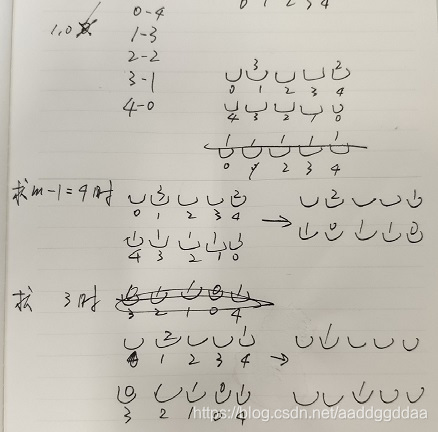 0 1 2 3 4
0-4
1,0
1-3
2-2
3-1
4-0
3 2
0 1 2 3 4
4 3 2 1 0
1 1 1 1 1
0 1 2 3 4
求m-1=4时
3 2
0 1 2 3 4
→
2 1
1 1 1 1 1
4 3 2 1 0
1 0 1 1 0
求 3时
0 1 1 0 1
3 2 1 0 4
2 1
1 2 3 4
→
1
0 1 1 0 1
3 2 1 0 4
https://blog.csdn.net/aaddggddaa